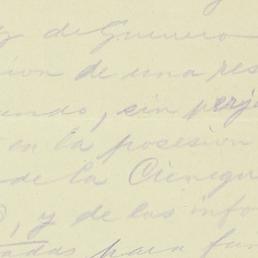 y de Guerrero
ion de una res
ando, sin perj
en la posesion
de la Cienegu
, y de los info
adas para fun